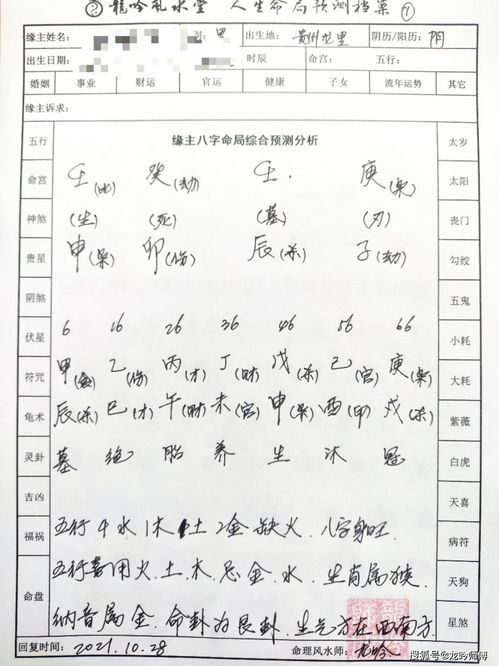 龍吟風水堂 人生命局预测档案 ①
缘主姓名: 别: 出生地: 贵州龙里 阴历/阳历: 阴
出生日期: 时辰 命宫: 五行:
婚姻 事业 财运 官运 健康 子女 流年运势 其它
缘主诉求:
五行 缘主八字命局综合预测分析 太岁
命宫 壬(比) 癸(劫) 壬. 庚(枭) 太阳
神煞 (生) (死) (墓) (刃) 丧门
贵星 申(枭) 卯(伤) 辰(杀) 子(劫) 勾绞
阴煞 五鬼
伏星 6 16 26 36 46 56 66 小耗
符咒 甲(食) 乙(伤) 丙(才) 丁(财) 戊(杀) 己(官) 庚(枭) 大耗
龟术 辰(杀) 巳(才) 午(财) 未(官) 申(枭) 酉(甲) 戌(杀) 紫薇
灵卦 墓 绝 胎 养 生 沐 冠 白虎
吉凶 天喜
福祸 五行4水1木1土2金缺火.八字身旺. 病符
五行喜用火.土.木忌金.水.生肖属猴. 天狗
命盘 纳音属金.命卦为艮卦.生气方在西南方. 星煞
回复时间: 2021.10.28 命理风水师: 龙吟
搜狐号@龙吟师傅